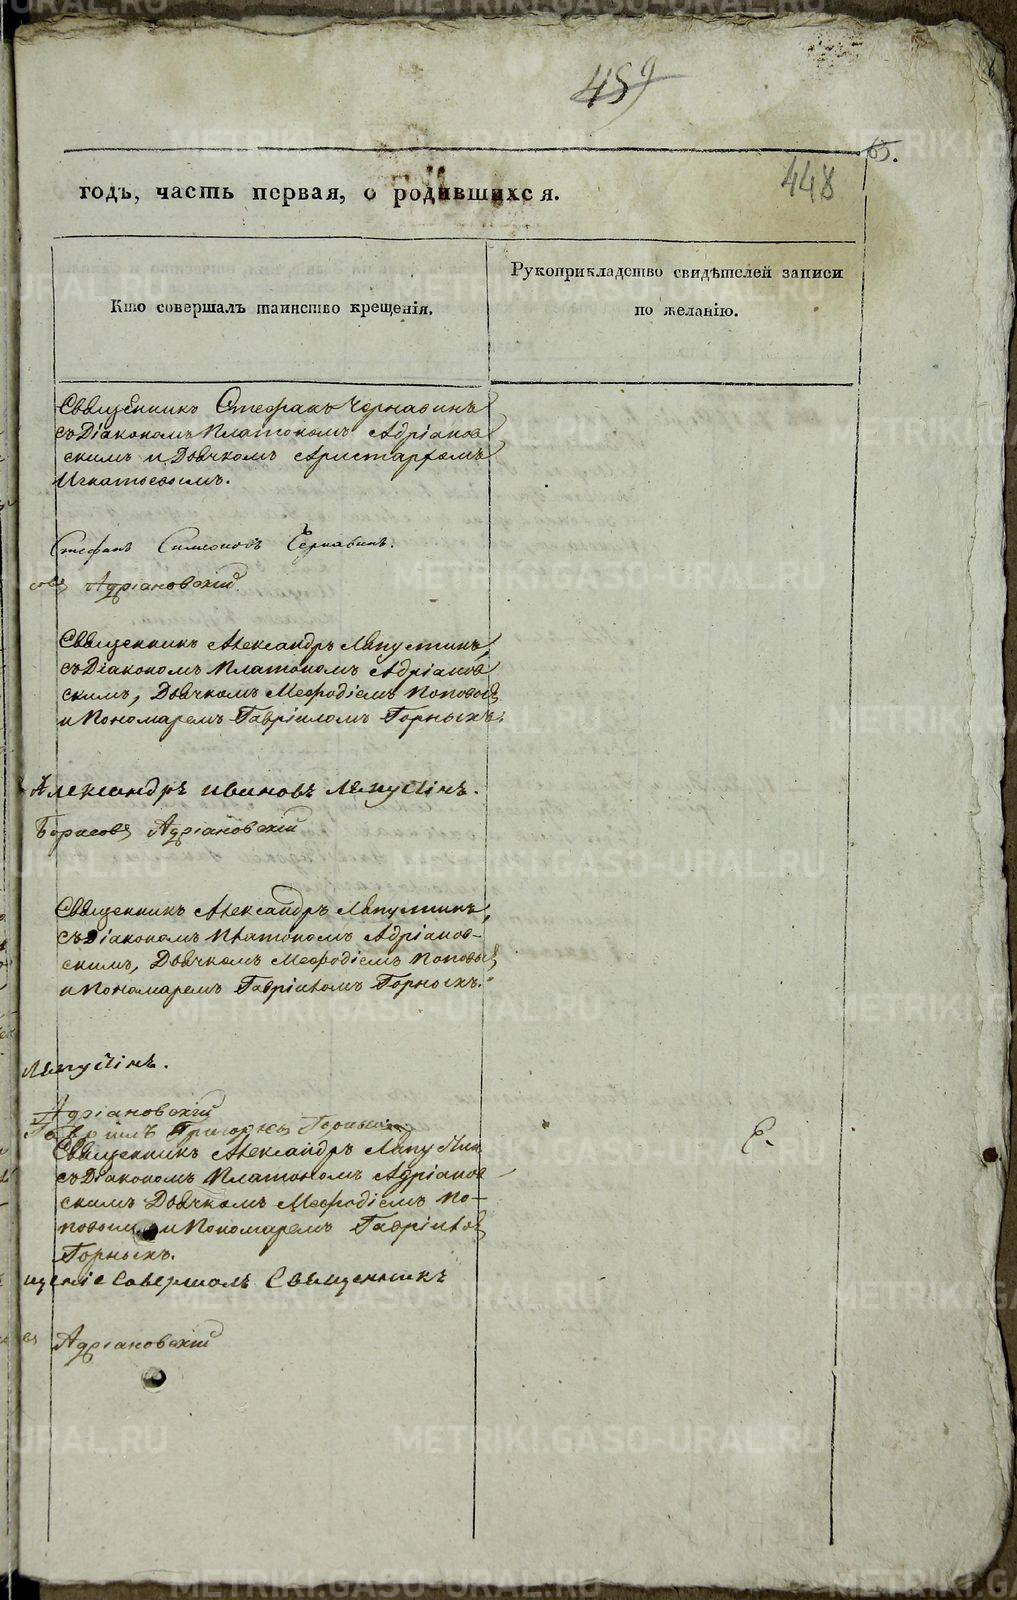 459
65.
448
годъ, часть первая, о родившихся.
Кто совершалъ таинство крещенія.
Рукоприкладство свидѣтелей записи
по желанію.
Священникъ Стефанъ Чернавинъ
съ Діакономъ Платономъ Адріанов
скимъ и Дьячкомъ Аристархомъ
Игнатьевымъ.
Стефанъ Симеоновъ Чернавинъ.
Адріановскій
Священникъ Александръ Ляпустинъ,
съ Діакономъ Платономъ Адріанов
скимъ, Дьячкомъ Меѳодіемъ Поповы
и Пономаремъ Гавріиломъ Горныхъ.
Александръ Ивановъ Ляпустинъ.
Борисовъ Адріановскій
Священникъ Александръ Ляпустинъ,
съ Діакономъ Платономъ Адріанов-
скимъ, Дьячкомъ Меѳодіемъ Поповы
и Пономаремъ Гавріиломъ Горныхъ.
Ляпустинъ.
Адріановскій
Гавріилъ Григорьевъ Горныхъ
Священникъ Александръ Ляпустин
съ Діакономъ Платономъ Адріанов
скимъ Дьячкомъ Меѳодіемъ По-
повы и Пономаремъ Гавріило
Горныхъ.
щеніе совершалъ Священникъ
Адріановскій
METRIKI.GASO-URAL.RU